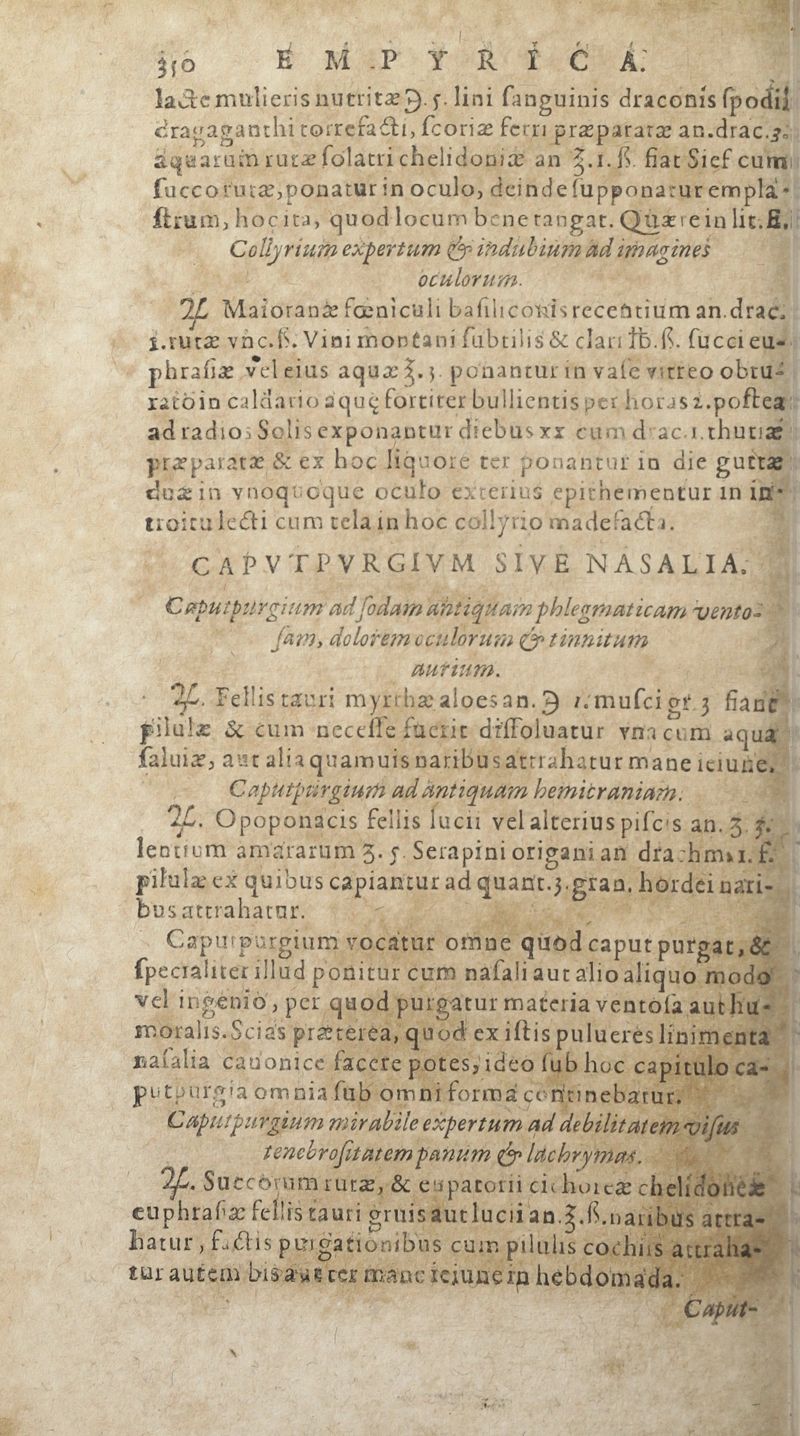 350 E M P Y R I C A.
lacte mulieris nutritæ ℈. ſ. lini ſanguinis draconis ſpodii
dragaganthi torrefacti, ſcoriæ ferri præparatæ an. drac. 3.
aquarum rutæ ſolatri chelidoniæ an ℥.1.ß. fiat Sief cum
ſucco rutæ, ponatur in oculo, deinde ſupponatur empla-
ſtrum, hoc ita, quod locum bene tangat. Quære in lit. E.
Collyrium expertum & indubium ad imagines
oculorum.
♃ Maioranæ fœniculi baſiliconis recentium an. drac.
1. rutæ vnc.ß. Vini montani ſubtilis & clari ℔.ß. ſucci eu-
phraſiæ vel eius aquæ ℥.3. ponantur in vaſe vitreo obtu-
rato in caldario aquę fortiter bullientis per horas 2. poſtea
ad radios Solis exponantur diebus xx cum drac. 1. thutiæ
præparatæ & ex hoc liquore ter ponantur in die guttæ
duæ in vnoquoque oculo exterius epithementur in in-
troitu lecti cum tela in hoc collyrio madefacta.
CAPVTPVRGIVM SIVE NASALIA.
Caputpurgium ad ſodam antiquam phlegmaticam vento-
ſam, dolorem oculorum & tinnitum
aurium.
♃. Fellis tauri myrrhæ aloes an. ℈ 1. muſci gr. 3 fiant
pilulæ & cum neceſſe fuerit diſſoluatur vna cum aqua
ſaluiæ, aut alia quamuis naribus attrahatur mane ieiune.
Caputpurgium ad antiquam hemicraniam.
♃. Opoponacis fellis lucii vel alterius piſcis an. ʒ. ſ.
lentium amararum ʒ. ſ. Serapini origani an drachm. 1. f.
pilulæ ex quibus capiantur ad quant. 3. gran. hordei nari-
bus attrahatur.
Caputpurgium vocatur omne quod caput purgat, &
ſpecialiter illud ponitur cum naſali aut alio aliquo modo
vel ingenio, per quod purgatur materia ventoſa aut hu-
moralis. Scias præterea, quod ex iſtis pulueres linimenta
naſalia canonice facere potes, ideo ſub hoc capitulo ca-
putpurgia omnia ſub omni forma continebatur.
Caputpurgium mirabile expertum ad debilitatem viſus
tenebroſitatem panum & lachrymas.
♃. Succorum rutæ, & eupatorii cichoreæ chelidoneæ
euphraſiæ fellis tauri gruis aut lucii an. ℥.ß. naribus attra-
hatur, factis purgationibus cum pilulis cochiis attraha-
tur autem bis aut ter mane ieiune in hebdomada.
Caput-